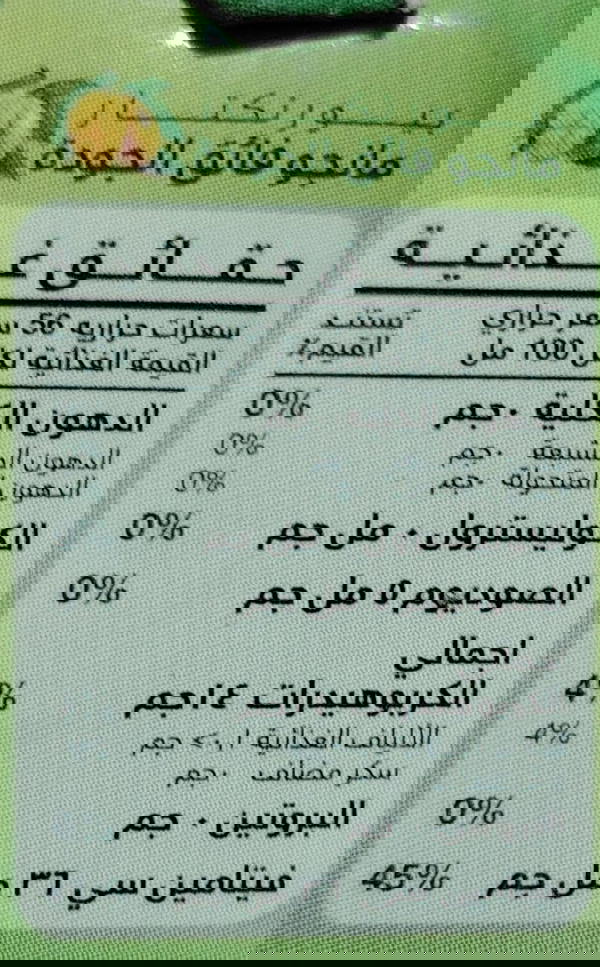 بيورنكتار
مانجو فائق الجودة
حقائق غذائية
سعرات حرارية 56 سعر حراري
القيمة الغذائية لكل 100 مل القيم%
الدهون الكلية ٠ جم 0%
الدهون المشبعة ٠ جم 0%
الدهون المتحولة ٠ جم 0%
الكوليسترول ٠ مل جم 0%
الصوديوم ٥ مل جم 0%
اجمالي
الكربوهيدرات ١٤ جم 4%
الالياف الغذائية جم 4%
سكر مضاف ٠ جم
البروتين ٠ جم 0%
فيتامين سي ٣٦ مل جم 45%